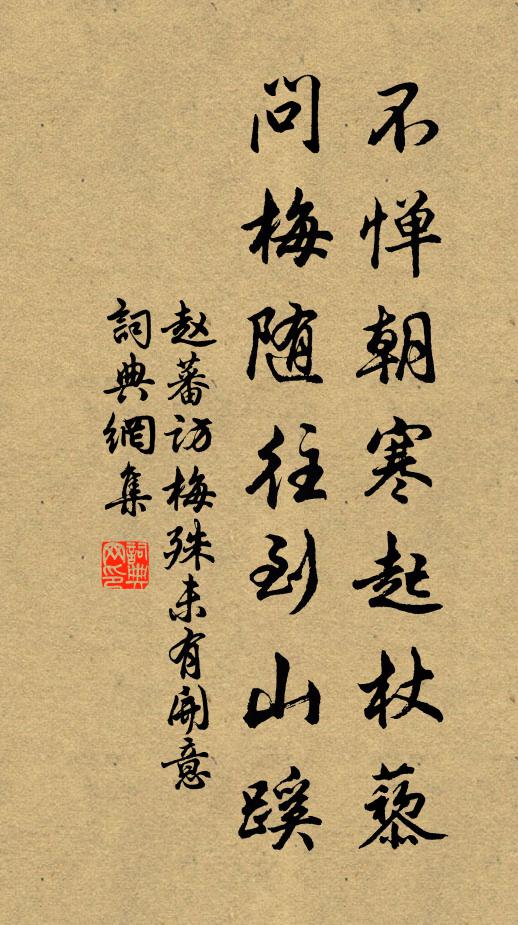 不惮朝寒起杖藜
问梅随往到山蹊
赵蕃访梅殊未有开意
詞典網集
詞典網印